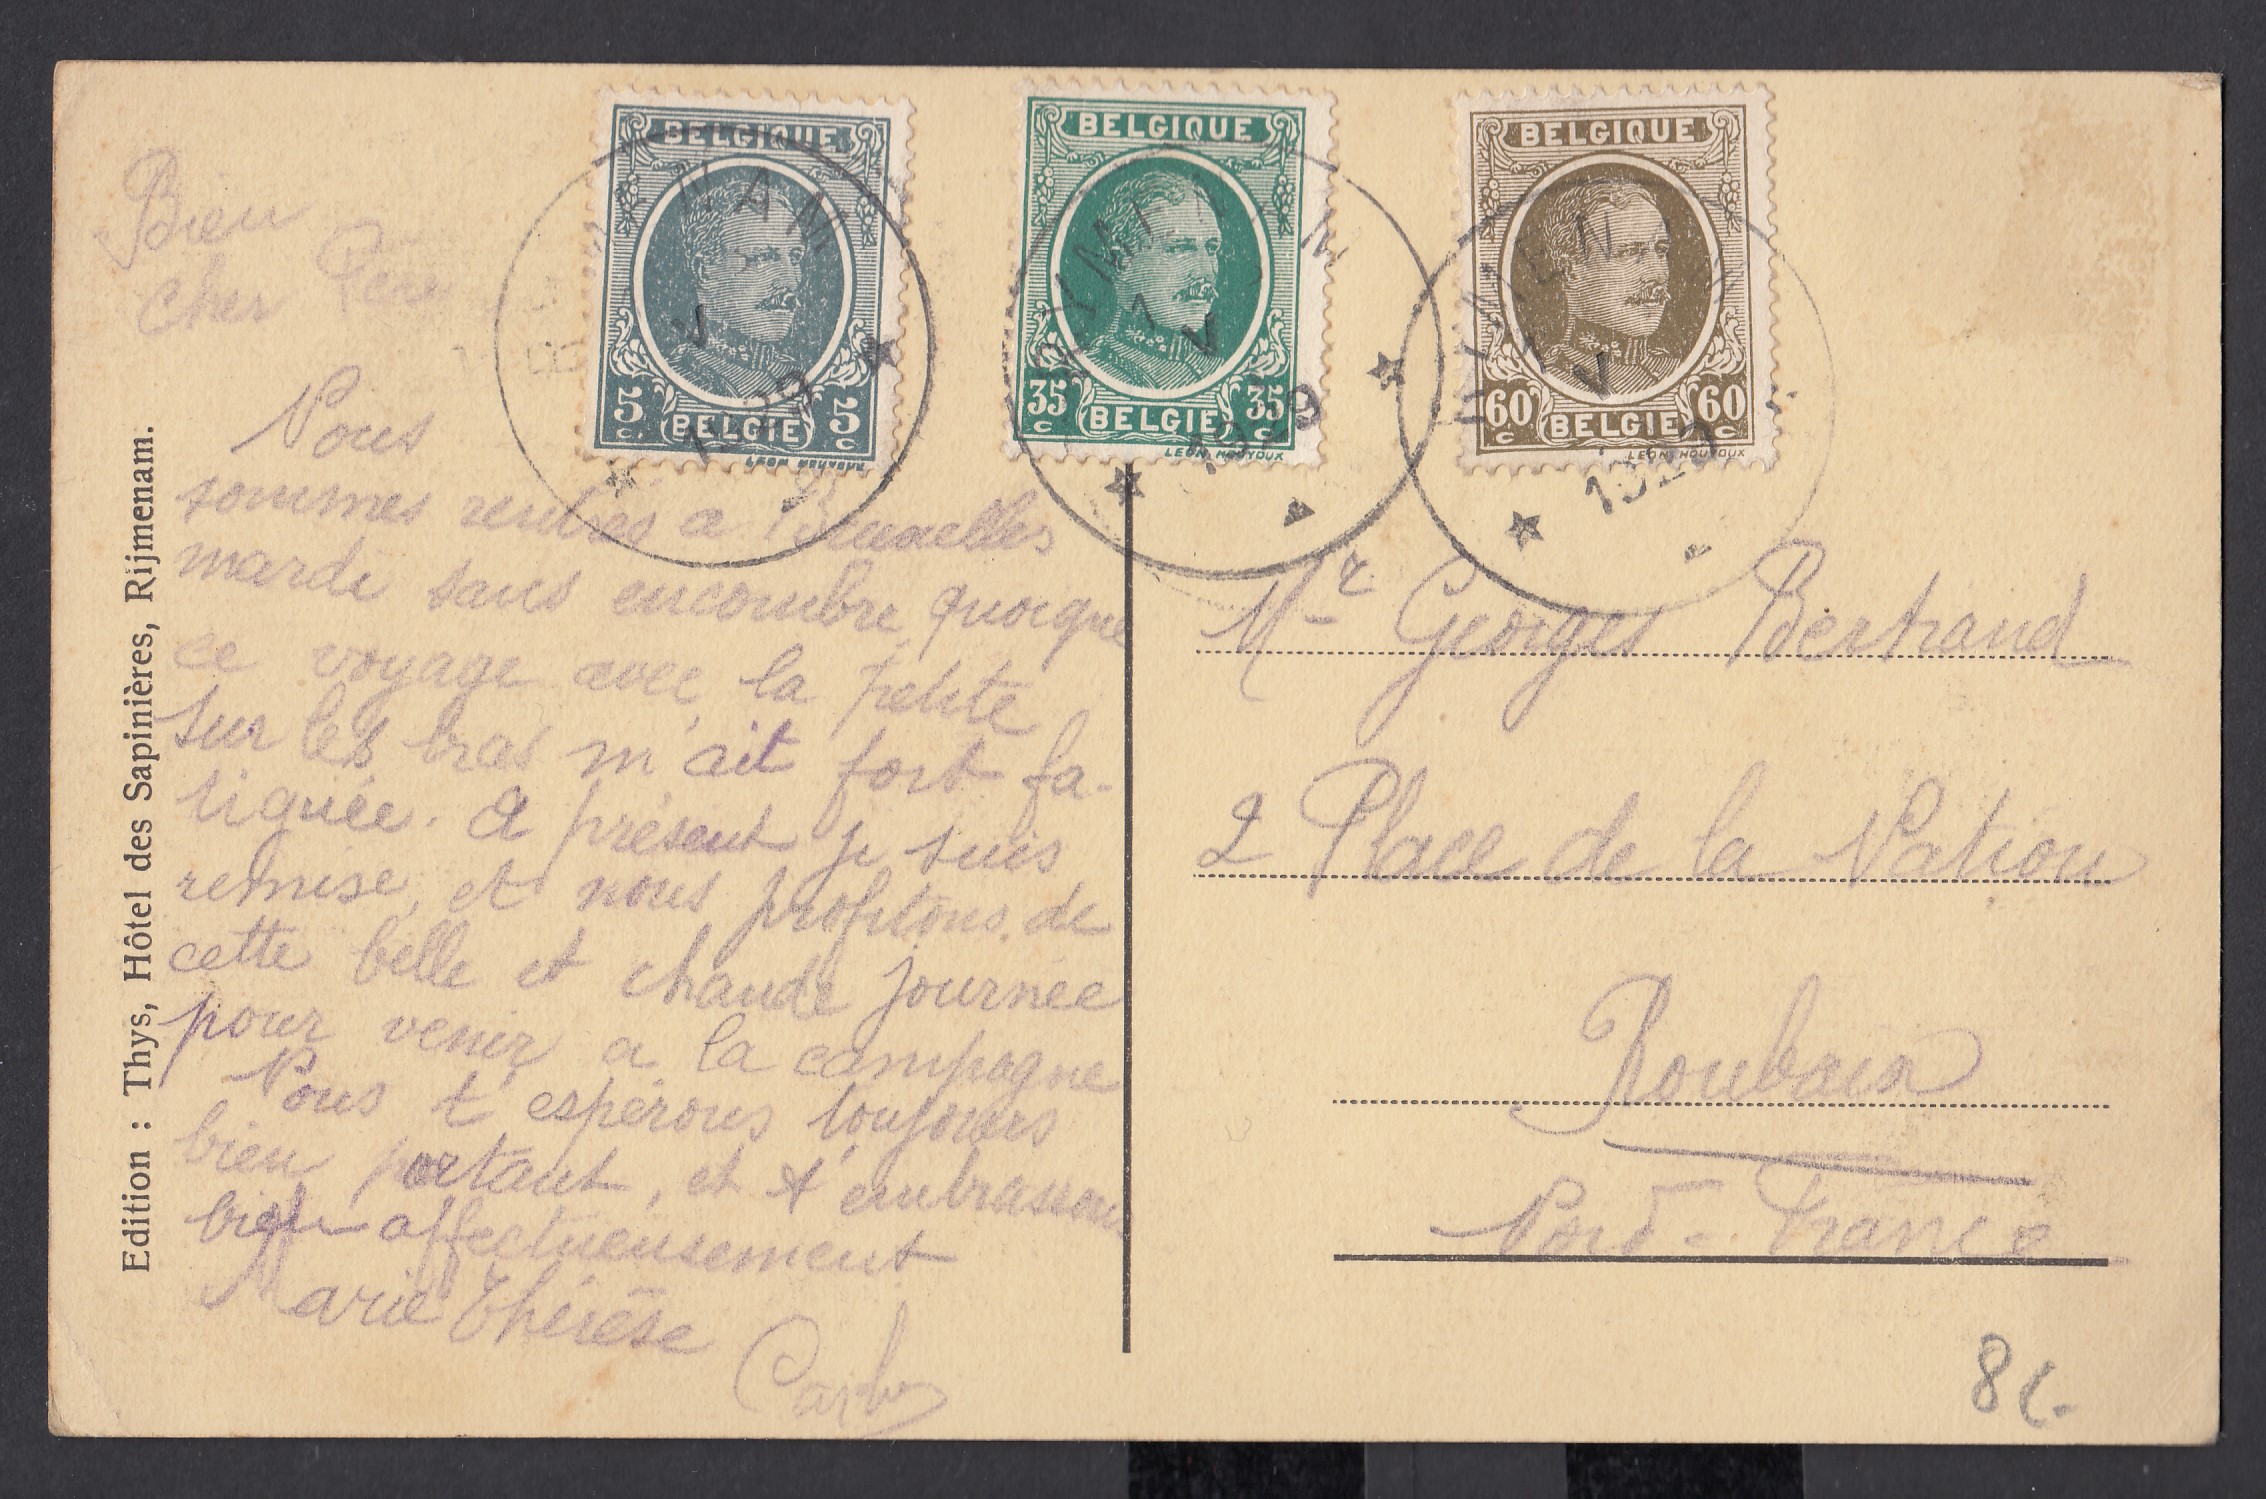 BELGIQUE
5c. BELGIE 5c
LEON HOUYOUX
BELGIQUE
35c BELGIE 35c
LEON HOUYOUX
BELGIQUE
60c BELGIE 60c
LEON HOUYOUX
1929
1929
Edition : Thys, Hôtel des Sapinières, Rijmenam.
Bien
cher Père
Nous
sommes rentrés a Bruxelles
mardi sans encombre, quoique
ce voyage avec la petite
sur les bras m'ait fort fa-
tiguée. A présent je suis
remise, et nous profitons de
cette belle et chaude journée
pour venir a la campagne
Nous t'espérons toujours
bien portant, et t'embrassons
bien affectueusement
Marie Thérèse
Mr Georges Bertrand
2 Place de la Nation
Roubaix
Nord - France
8€.-